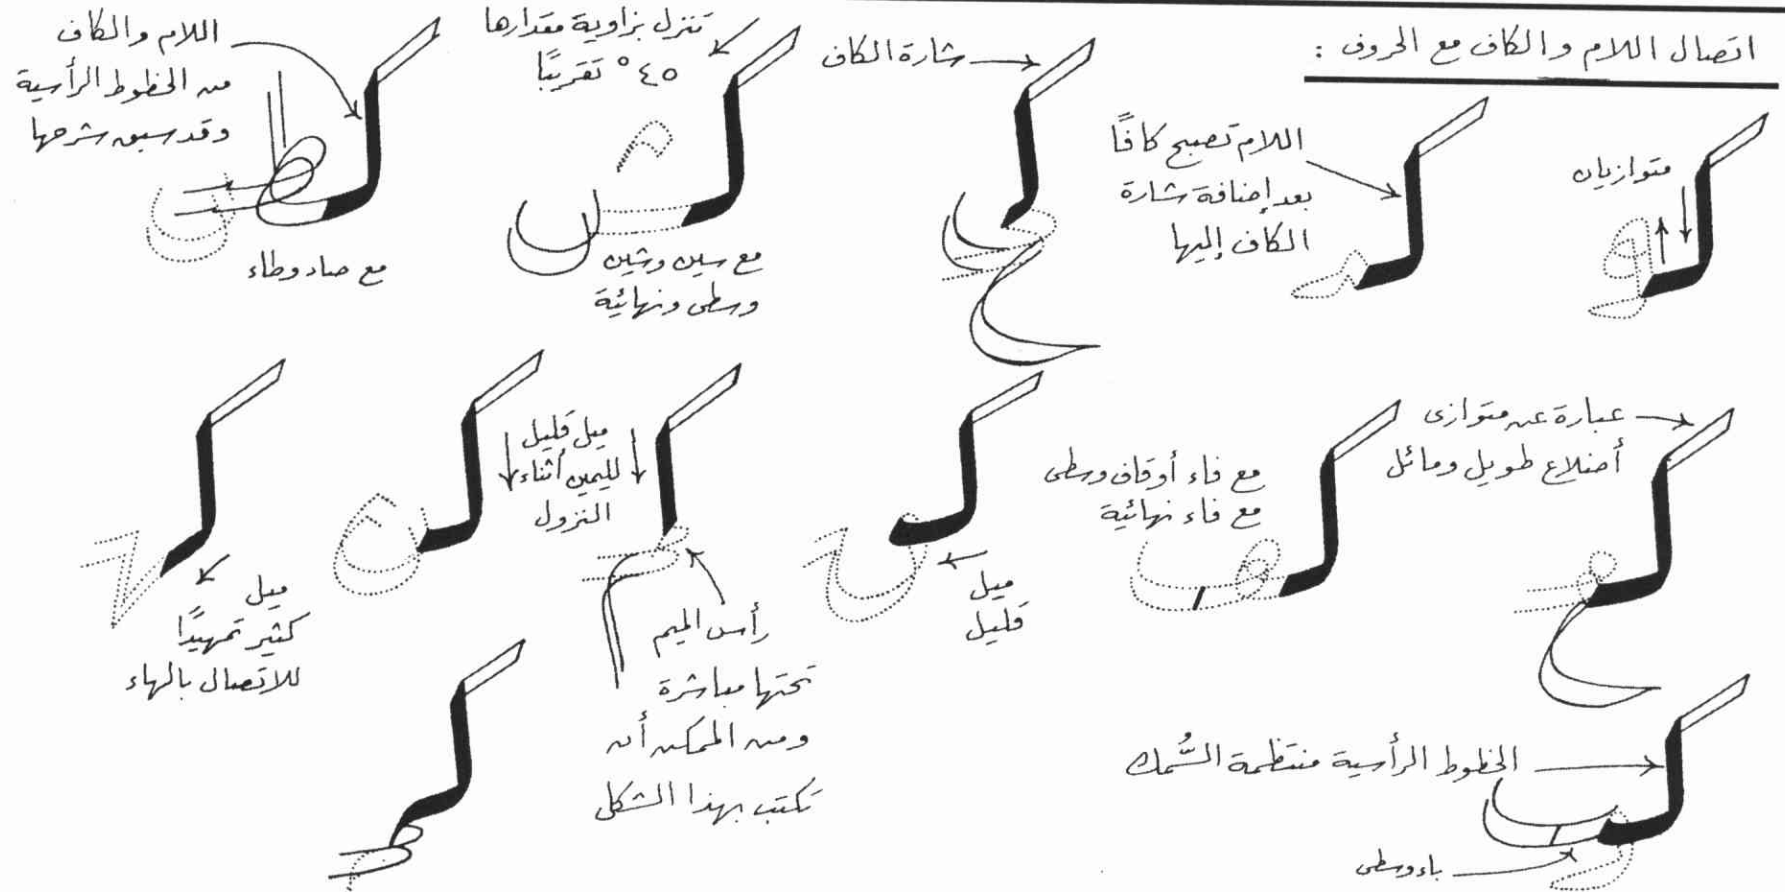 اتصال اللام والكاف مع الحروف :
متوازيان
اللام تصبح كافًا
بعد إضافة شارة
الكاف إليها
شارة الكاف
تنزل بزاوية مقدارها
٤٥° تقريبًا
مع سين وشين
وسطى ونهائية
اللام والكاف
من الخطوط الرأسية
وقد سبق شرحها
مع صاد وطاء
عبارة عن متوازى
أضلاع طويل ومائل
مع فاء أوقاف وسطى
مع فاء نهائية
ميل
قليل
ميل قليل
لليمين أثناء
النزول
رأس الميم
تحتها مباشرة
ومن الممكن أن
تكتب بهذا الشكل
ميل
كثير تمهيدًا
للاتصال بالهاء
الخطوط الرأسية منتظمة السُّمك
باء وسطى